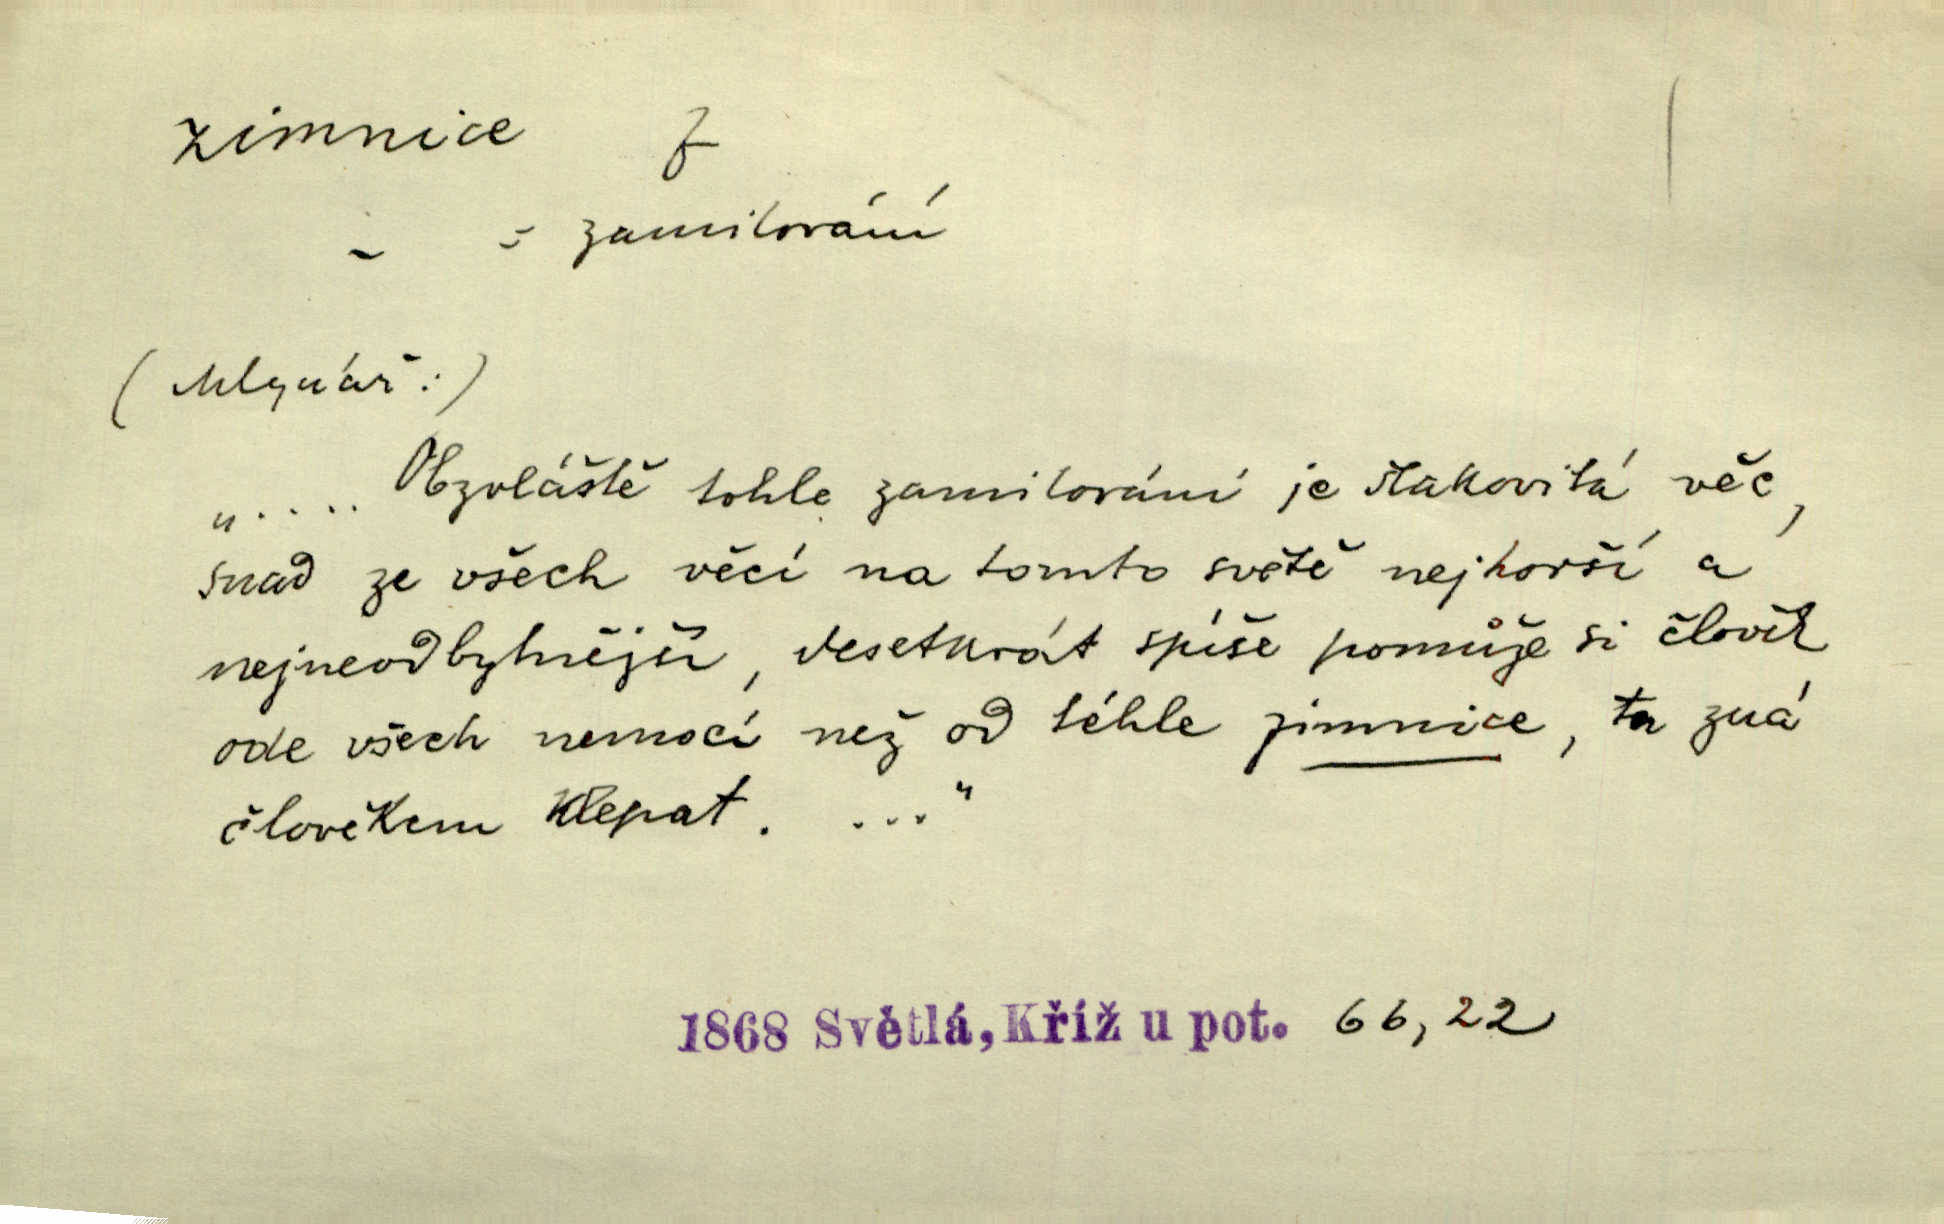 zimnice f
- = zamilování
(Mlynář:)
„.... Obzvláště tohle zamilování je šlakovitá věc,
snad ze všech věcí na tomto světě nejhorší a
nejneodbytnější, desetkrát spíše pomůže si člověk
ode všech nemocí než od téhle zimnice, ta zná
člověkem klepat. ..."
1868 Světlá, Kříž u pot. 66, 22